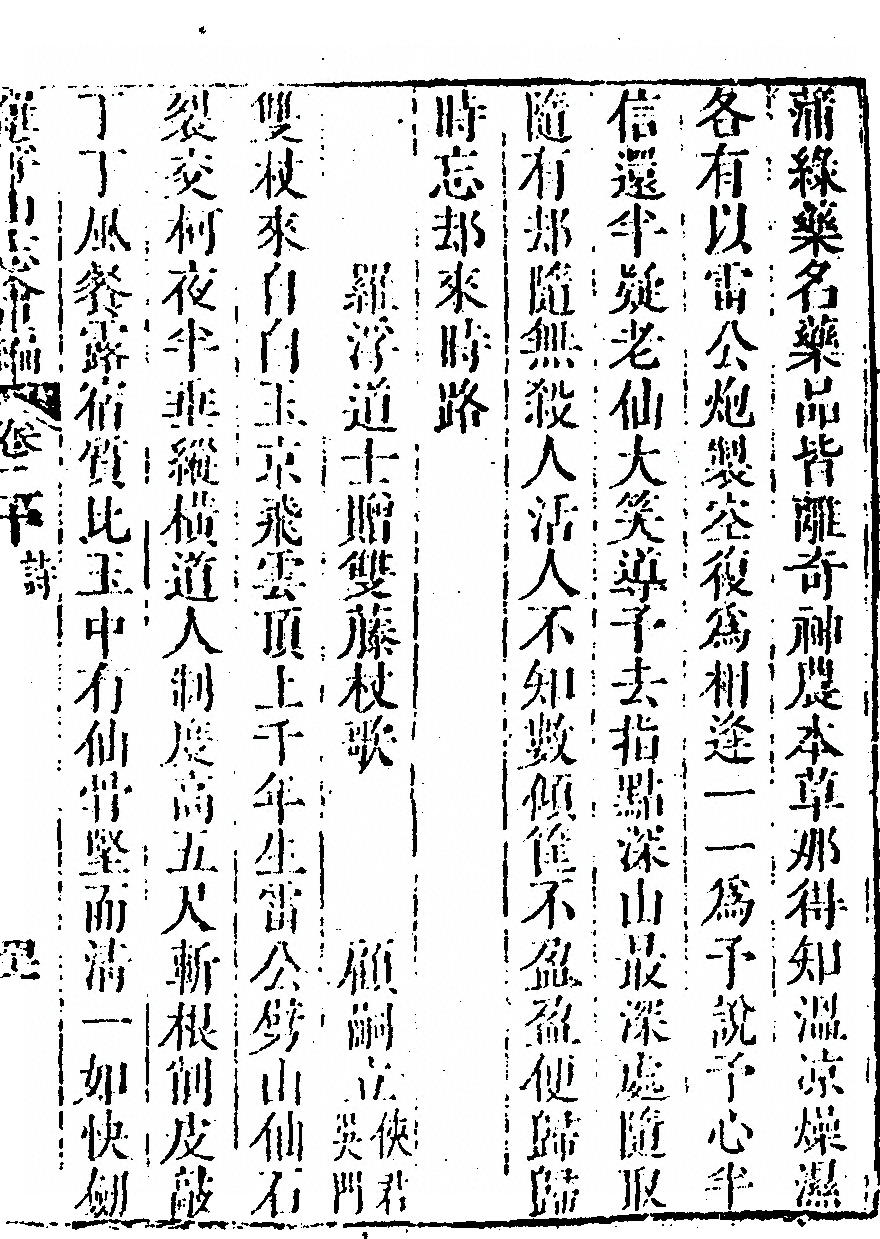 蒲綠藥名藥品皆離奇神農本草那得知溫凉燥濕
各有以雷公炮製空復爲相逢一一爲予說予心半
信還半疑老仙大笑導予去指點深山最深處隨取
隨有却隨無殺人活人不知數傾筐不盈盈便歸歸
時忘却來時路
羅浮道士贈雙藤杖歌 顧嗣立 俠君 吳門
雙杖來自白玉京飛雲頂上千年生雷公劈山仙石
裂交柯夜半垂縱橫道人制度高五尺斬根削皮敲
丁丁風餐露宿質比玉中有仙骨堅而淸一如快劒
羅浮山志會編 卷二十 詩